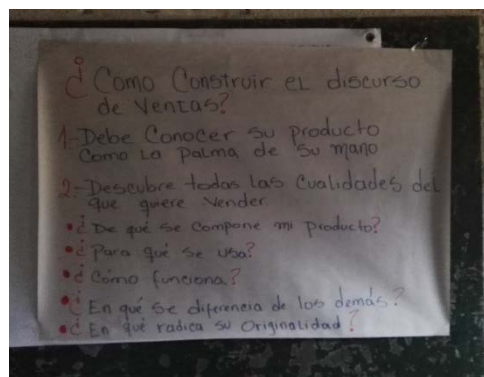 ¿Como Construir el discurso
de Ventas?
1.- Debe Conocer su producto
Como La palma de su mano
2.- Descubre todas Las Cualidades del
que quiere Vender
• ¿De qué se compone mi producto?
• ¿Para qué se usa?
• ¿Cómo funciona?
• ¿En qué se diferencia de los demás?
• ¿En qué radica su Originalidad?